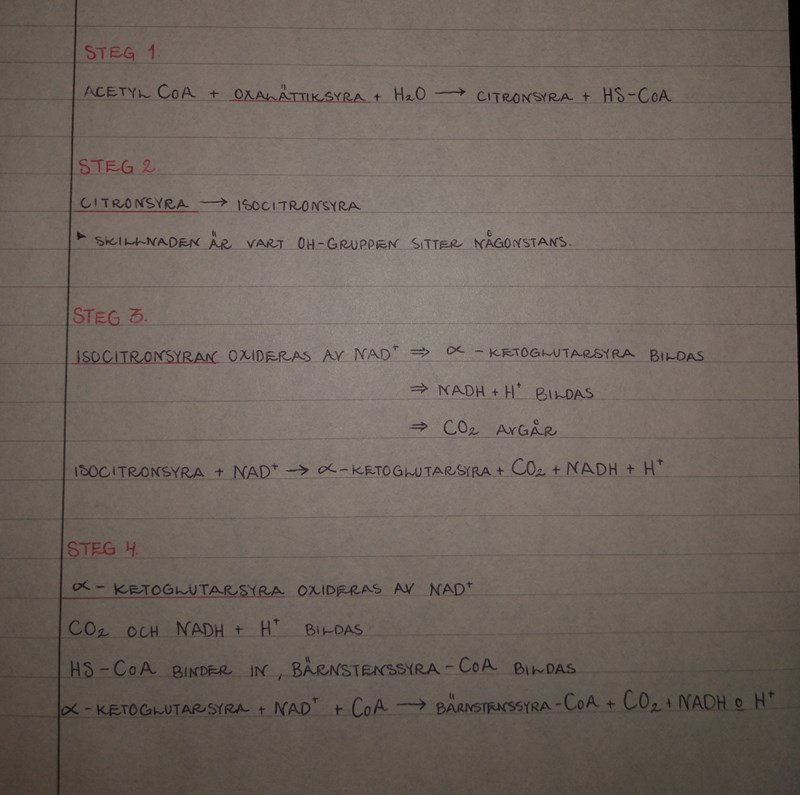 STEG 1.
ACETYL CoA + OXALÄTTIKSYRA + H₂O → CITRONSYRA + HS-CoA
STEG 2.
CITRONSYRA → ISOCITRONSYRA
▸ SKILLNADEN ÄR VART OH-GRUPPEN SITTER NÅGONSTANS.
STEG 3.
ISOCITRONSYRAN OXIDERAS AV NAD⁺ ⇒ α-KETOGLUTARSYRA BILDAS
⇒ NADH + H⁺ BILDAS
⇒ CO₂ AVGÅR
ISOCITRONSYRA + NAD⁺ → α-KETOGLUTARSYRA + CO₂ + NADH + H⁺
STEG 4.
α-KETOGLUTARSYRA OXIDERAS AV NAD⁺
CO₂ OCH NADH + H⁺ BILDAS
HS-CoA BINDER IN, BÄRNSTENSSYRA-CoA BILDAS
α-KETOGLUTARSYRA + NAD⁺ + CoA → BÄRNSTENSSYRA-CoA + CO₂ + NADH o H⁺